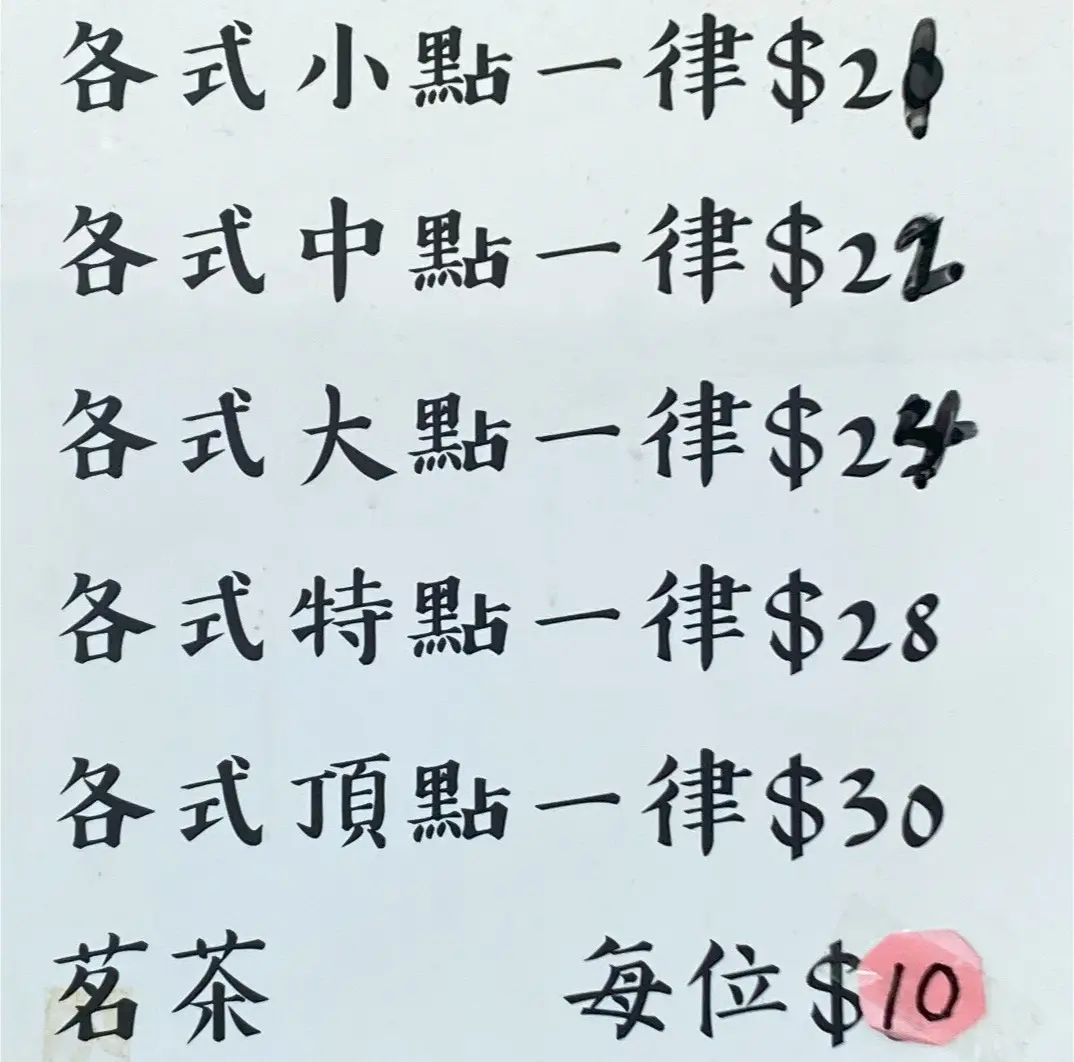 各式小點一律$21
各式中點一律$22
各式大點一律$24
各式特點一律$28
各式頂點一律$30
茗茶 每位$10